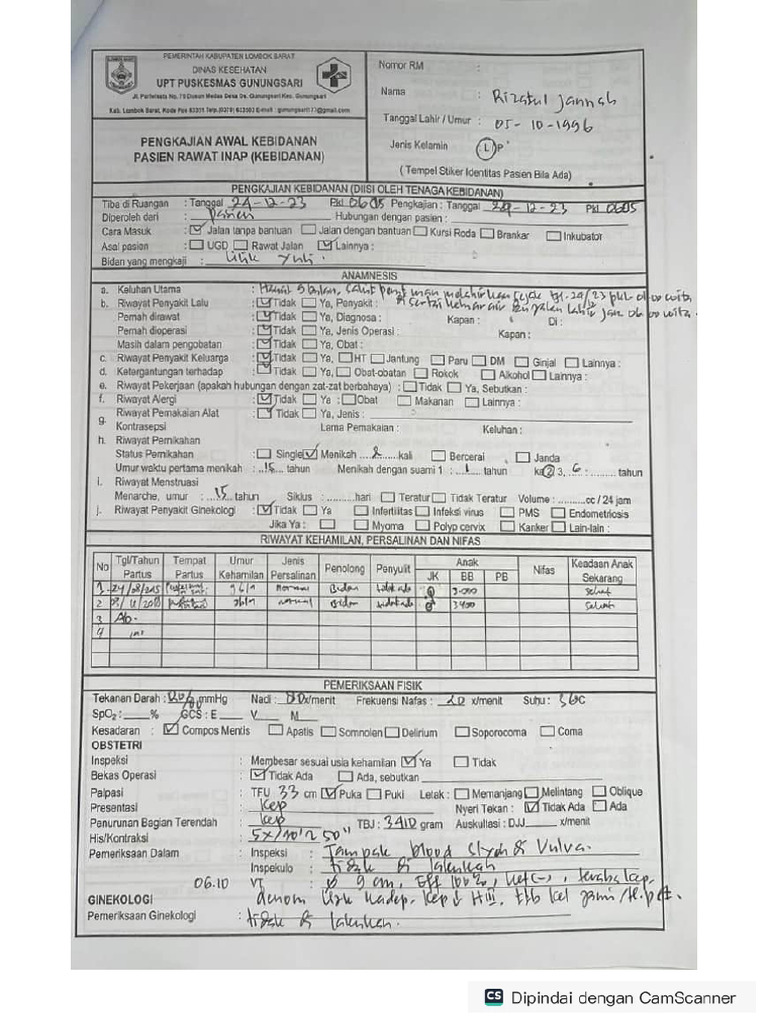 PEMERINTAH KABUPATEN LOMBOK BARAT
DINAS KESEHATAN
UPT PUSKESMAS GUNUNGSARI
Jl. Pariwisata No. 75 Dusun Medas Desa Gunungsari Kec. Gunungsari
Kab. Lombok Barat, Kode Pos 83351
PENGKAJIAN AWAL KEBIDANAN
PASIEN RAWAT INAP (KEBIDANAN)
Nomor RM :
Nama : Rizatul Jannah
Tanggal Lahir / Umur : 05-10-1996
Jenis Kelamin : L P
( Tempel Stiker Identitas Pasien Bila Ada)
PENGKAJIAN KEBIDANAN (DIISI OLEH TENAGA KEBIDANAN)
Tiba di Ruangan : Tanggal 24-12-23 Pkl 0605 Pengkajian : Tanggal 24-12-23 Pkl 0605
Diperoleh dari : pasien Hubungan dengan pasien :
Cara Masuk : Jalan tanpa bantuan Jalan dengan bantuan Kursi Roda Brankar Inkubator
Asal pasien : UGD Rawat Jalan Lainnya :
Bidan yang mengkaji :
ANAMNESIS
a. Keluhan Utama : Hamil 9 bulan, sakit perut
b. Riwayat Penyakit Lalu : Tidak Ya, Penyakit : disertai keluar air
Pernah dirawat : Tidak Ya, Diagnosa : Kapan : Di :
Pernah dioperasi : Tidak Ya, Jenis Operasi : Kapan :
Masih dalam pengobatan : Tidak Ya, Obat :
c. Riwayat Penyakit Keluarga : Tidak Ya, HT Jantung Paru DM Ginjal Lainnya :
d. Ketergantungan terhadap : Tidak Ya, Obat-obatan Rokok Alkohol Lainnya :
e. Riwayat Pekerjaan (apakah hubungan dengan zat-zat berbahaya) : Tidak Ya, Sebutkan :
f. Riwayat Alergi : Tidak Ya : Obat Makanan Lainnya :
g. Riwayat Pemakaian Alat : Tidak Ya, Jenis :
Kontrasepsi Lama Pemakaian : Keluhan :
h. Riwayat Pernikahan
Status Pernikahan : Single Menikah 2 kali Bercerai Janda
Umur waktu pertama menikah : 15 tahun Menikah dengan suami 1 : 1 tahun ke 2 3, 6 tahun
i. Riwayat Menstruasi
Menarche, umur : 15 tahun Siklus : ........hari Teratur Tidak Teratur Volume : ..........cc / 24 jam
j. Riwayat Penyakit Ginekologi : Tidak Ya Infertilitas Infeksi virus PMS Endometriosis
Jika Ya : Myoma Polyp cervix Kanker Lain-lain :
RIWAYAT KEHAMILAN, PERSALINAN DAN NIFAS
No Tgl/Tahun Partus Tempat Partus Umur Kehamilan Jenis Persalinan Penolong Penyulit Anak JK BB PB Nifas Keadaan Anak Sekarang
1 9 bln normal Bidan tidak ada sehat
2 9 bln normal Bidan tidak ada 3400 sehat
3 Ab.
4 ini
PEMERIKSAAN FISIK
Tekanan Darah : mmHg Nadi : x/menit Frekuensi Nafas : 20 x/menit Suhu : 36 C
SpO2 : % GCS : E V M
Kesadaran : Compos Mentis Apatis Somnolen Delirium Soporocoma Coma
OBSTETRI
Inspeksi : Membesar sesuai usia kehamilan Ya Tidak
Bekas Operasi : Tidak Ada Ada, sebutkan
Palpasi : TFU 33 cm Puka Puki Letak : Memanjang Melintang Oblique
Presentasi : Kep Nyeri Tekan : Tidak Ada Ada
Penurunan Bagian Terendah : Kep TBJ : 3410 gram Auskultasi : DJJ x/menit
His/Kontraksi : 5x/10' 50"
Pemeriksaan Dalam : Inspeksi : Tampak blood di Vulva.
Inspekulo : tidak di lakukan
06.10 VT : Ø 9 cm, Eff 100%, ket (-), teraba kep.
denom Kep ↓ HIII,
GINEKOLOGI
Pemeriksaan Ginekologi : tidak di lakukan.
CS Dipindai dengan CamScanner